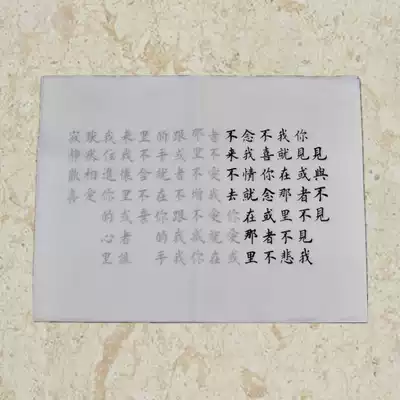 見與不見
你見或者不見我
我就在那里不悲
不喜你念或者不
念我情就在那里
不來不去你愛或
者不愛我愛就在
那里不增不減你
跟或者不跟我我
的手就在你的手
里不舍不棄
來我懷里或者讓
我住進你的心里
默然相愛
寂靜歡喜